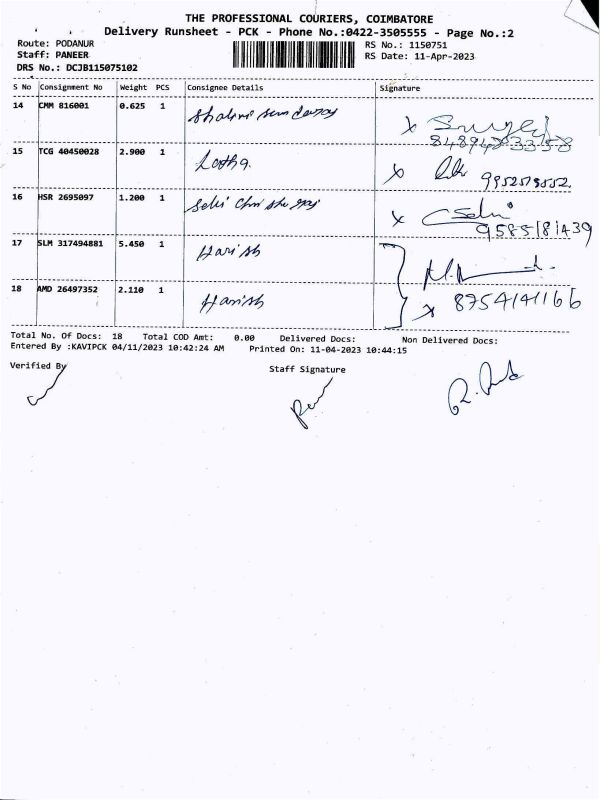 THE PROFESSIONAL COURIERS, COIMBATORE
Delivery Runsheet - PCK - Phone No.:0422-3505555 - Page No.:2
Route: PODANUR RS No.: 1150751
Staff: PANEER RS Date: 11-Apr-2023
DRS No.: DCJB115075102
S No Consignment No Weight PCS Consignee Details Signature
14 CMM 816001 0.625 1 Shalini
15 TCG 40450028 2.900 1 Latha
9952519552
16 HSR 2695097 1.200 1 Selvi
C Selvi
9585181439
17 SLM 317494881 5.450 1 Harish
18 AMD 26497352 2.110 1 Harish
x 8754141166
Total No. Of Docs: 18 Total COD Amt: 0.00 Delivered Docs: Non Delivered Docs:
Entered By :KAVIPCK 04/11/2023 10:42:24 AM Printed On: 11-04-2023 10:44:15
Verified By Staff Signature